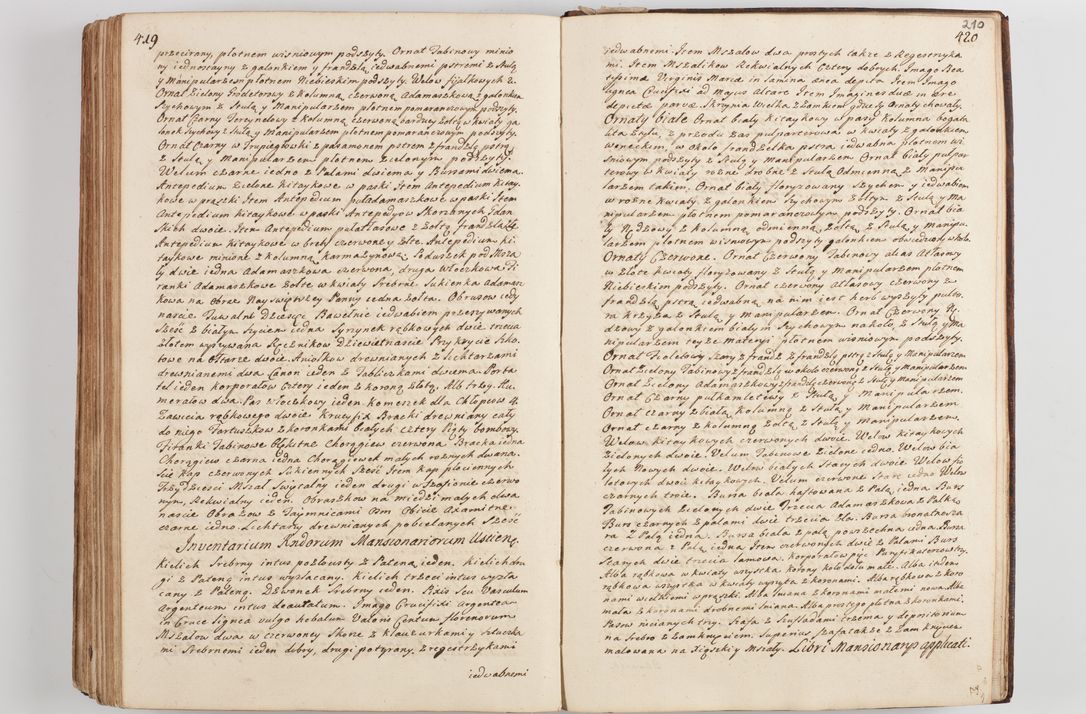 419
przecirany, plotnem wisniowym podszyty. Ornat Tabinowy minio
ny iednostayny z galonkiem y frandzlą iedwabnemi postrzemi z Stułą
y Manipularzem plotnem Niebieskim podszyty. Welow fijalkowych 2.
Ornat Zielony Grodetorowy z Kolumną czerwoną Adamaszkową z galonkiem
Szychowym z Stułą y Manipularzem plotnem pomaranczowym podszyty.
Ornat Czarny z Kolumną czerwoną zołtą w kwiaty ga
lonek Szychowy z Stułą y Manipularzem plotnem pomaranczowym podszyty.
Ornat Czarny w Trupiegłowki z pasamonem pstrem z frandzlą pstrą
z Stułą y Manipularzem plotnem Zielonym podszyty.
Welum czarne iedno z Palami dwiema y Bursami dwiema.
Antepedium Zielone kitaykowe w paski Item Antepedium kitay,
kowe w prązki Item Antepedium puladamaszkowe w paski Item
Antepedium kitaykowe w paski Antepedyow Skorzbnych Gdan
skich dwoie. Item Antepedium pulatlasowe z Zołtą frandzlą
Antepedium kitaykowe w brety czerwone y Zołte. Antepedium ki,
taykowe minione z kolumną karmazynową. Poduszek pod Msza
ły dwie iedna Adamaszkowa czerwona, druga Włoczkowa Fi
ranki Adamaszkowe Zołte w kwiaty Srebrne Sukienka Adamasz
kowa na Obraz Nayswiętszey Panny iedna Zołta. Obrusow iedy
nascie Tuwalni Dziesięc Bawełnic iedwabiem przeszywanych
Szesc z białym Szyciem iedna Synynek rąbkowych dwie trzecia
złotem wyszywana Ręcznikow dziewietnascie Przykrycie Szko,
towe na Ołtarze dwoie. Aniołkow drewnianych z Lichtarzami
drewnianemi dwa Canon ieden z Tabliczkami dwiema. Porta
tel ieden korporałow Cztery ieden z koroną złotą. Alb trzy. Hu,
merałow dwa. Pas włoczkowy ieden komeszek dla Chłopcow 4.
Zawicia rąbkowego dwoie. Krucyfix Bracki drewniany cały
do niego Fartuszkow z koronkami białych cztery Piąty bombazy,
Firanki Tabinowe Błękitne Chorągiew czerwona Bracka iedna
Chorągiew czarna iedna Chorągiewek małych roznych dwana,
scie Kap czerwonych Sukiennych Szesc Item kap płociennych
Trzydziesci Mszał Swiętalny ieden drugi w Szafionie czerwo
nym, Rekwialny ieden. Obrazkow na miedzi małych dwa
nascie Obrazow z Taiemnicami Osm Obicie Axamitne
czarne iedno. Lichtarzy drewnianych pobielanych Szesc
Inventarium Rndorum Mansionariorum Uscieng
kielich Srebrny intus pozłocisty z Pateną ieden. kielich dru
gi z Pateną intus wyzłacany. kielich trzeci intus wyzła
cany z Pateną. Dzwonek Srebrny ieden. Pixis seu Vasculum
Argenteum intus deauratum. Imago Crucifixi argentea
in Cruce lignea vulgo hebalum Valoris Centum florenorum
Mszałow dwa w czerwoney Skorze z klauzurkami y sztuczka
mi Srebrnemi ieden dobry, drugi potyrany, z regestrzykami
iedwabnemi
210
420
iedwabnemi Item Mszałow dwa prostych także z Regestrzyka
mi. Item Mszalikow Rekwialnych Cztery dobrych. Imago Bea
tissima Virginis Mariæ in lamina ærea depicta Item Imago
lignea Crucifixi ad majus altare Item Imagines duæ in ære
depictæ parvæ. Skrzynia Wielka z Zamkiem gdzie są Ornaty chowaly.
Ornaty Białe Ornat biały kitaykowy w pasy kolumna bogata
Lita Szyta, z przodu zas pulparterowa w kwiaty z galonkiem
weneckim, w około frandzelka pstra iedwabna plotnem wi,
sniowym podszyty z Stułą y Manipularzem. Ornat biały pulpar
terowy w kwiaty rozne drobne z Stułą Odmienną z Manipu
larzem takiem. Ornat biały floryzowany Szychem y iedwabiem
w rozne kwiaty z galonkiem Szychowym Zołtym z Stułą y Ma
nipularzem plotnem pomaranczowym podszyty. Ornat bia
ły Rządzowy z kolumną odmienną Zołtą z Stułą y Manipu,
larzem plotnem wisniowym podszyty galonkiem obwiedziony w koło.
Ornaty Czerwone. Ornat Czerwony Tabinowy alias Atłasowy
w złote kwiaty floryzowany z Stułą y Manipularzem plotnem
Niebieskim podszyty. Ornat czerwony Atłasowy czerwony z
frandzlą pstrą iedwabną, na nim iest herb wyszyty pultо,
ra krzyża z Stułą y Manipularzem. Ornat czerwony Rzą,
dzowy z galonkiem białym Szychowym na koło, z Stułą y Ma
nipularzem teyże materyi plotnem wisniowym podszyty.
Ornat Fioletowy Szary z frandzlą pstrą z Stułą y Manipularzem
Ornat Zielony Tabinowy z frandzlą w około czerwoną z Stułą y Manipularzem
Ornat Zielony Adamaszkowy z frandzlą czerwoną z Stułą y Manipularzem
Ornat Czarny pulkamletowy z Stułą y Manipularzem.
Ornat Czarny z białą kolumną z Stułą y Manipularzem
Ornat czarny z kolumną Zołtą z Stułą y Manipularzem,
Welow kitaykowych czerwonych dwoie. Welow kitaykowych
Zielonych dwoie. Velum Tabinowe Zielone iedno. Welow bia
łych Nowych dwoie. Welow białych Starych dwoie Welow fio
letowych dwoie kitaykowych. Velum czerwone Stare iedno Welow
czarnych troie. Bursa biała haftowana z Palą iedna Burs
Tabinowych Zielonych dwie Trzecia Adamaszkowa z Palką
Burs czarnych z palami dwie trzecia
ra z Palą iedna. Bursa biała z palą powszechna iedna. Bursa
czerwona z Palą iedna Item czerwonych dwie z Palami Burs
Starych dwie trzecia lamowa, korporałow pięc Puryfikaterzow trzy.
Alba rąbkowa w kwiaty wszystka korony koło dołu małe. Alba itidem
rąbkowa wszystka w kwiaty wyszyta z koronami. Alba rąbkowa z koro
nami wielkiemi w prązki. Alba lniana z koronami małemi nowa. Alba
mała z koronami drobnemi lniana. Alba prostego płotna z koronkami.
Pasow nicianych trzy. Szafa z Szufladami trzema y depositorium
na Srebro z Zamknięciem. Superius Szafa także z Zamknięciem
malowana na Xiążki y Mszały. Libri Mansionarys applicati.